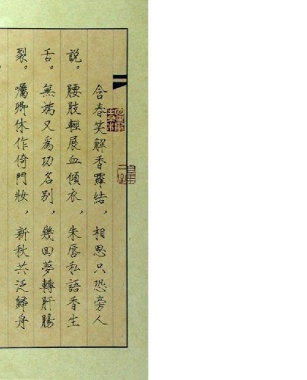 含春笑解香羅結，相思只恐旁人
說。腰肢輕展血傾衣，朱唇私語香生
舌。無端又為功名別，幾回夢轉肝腸
裂。囑卿休作倚門妝，新秋共泛歸舟